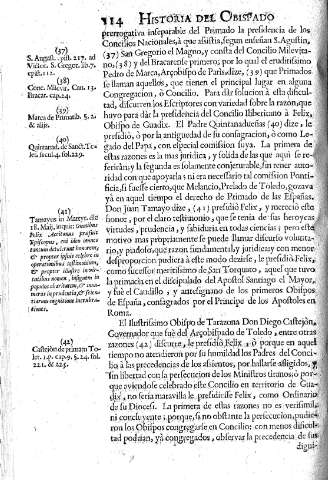 314 HISTORIA DEL OBISPADO
prerrogativa inseparable del Primado la presidencia de los
Concilios Nacionales, à que assistia, segun enseñan S. Agustin,
(37) San Gregorio el Magno, y consta del Concilio Milevita-
no, (38) y del Bracarense primero; por lo qual el eruditissimo
Pedro de Marca, Arçobispo de Paris dize, (39) que Primados
se llaman aquellos, que tienen el principal lugar en alguna
Congregacion, ò Concilio. Para dàr solucion à esta dificul-
tad, discurren los Escritores con variedad sobre la razon, que
huvo para dàr la presidencia del Concilio Illiberitano à Felix,
Obispo de Guadix. El Padre Quintanadueñas (40) dize, le
presidiò, ò por la antiguedad de su consagracion, ò como Le-
gado del Papa, con especial comission suya. La primera de
estas razones es la mas juridica, y solida de las que aqui se re-
feriràn; y la segunda es solamente conjetural, sin tener auto-
ridad con que apoyarla; ni era necessario tal comission Ponti-
ficia, si fuesse cierto, que Melancio, Prelado de Toledo, gozava
yà en aquel tiempo el derecho de Primado de las Españas.
Don Juan Tamayo dize, (41) presidiò Felix, y mereciò este
honor, por el claro testimonio, que se tenia de sus heroycas
virtudes, prudencia, y sabiduria en todas ciencias; pero este
motivo mas propriamente se puede llamar discurso volunta-
rio, y piadoso, que razon fundamental, y juridica; y con menor
desproporcion pudiera à este modo dezirse, le presidiò Felix,
como sucessor meritissimo de San Torquato, aquel que tuvo
la primacia en el discipulado del Apostol Santiago el Mayor,
y fue el Caudillo, y antesignano de los primeros Obispos
de España, consagrados por el Principe de los Apostoles en
Roma.
El Ilustrissimo Obispo de Tarazona Don Diego Castejòn,
Governador que fue del Arçobispado de Toledo, entre otras
razones (42) discurre, le presidiò Felix, ò porque en aquel
tiempo no atendieron por su humildad los Padres del Conci-
lio à las precedencias de los assientos, por hallarse afligidos, y
sin libertad con la perfecucion de los Ministros tiranos; ò por-
que aviendose celebrado este Concilio en territorio de Gua-
dix, no seria maravilla le presidiesse Felix, como Ordinario
de su Diocesi. La primera de estas razones no es verisimil,
ni concluyente; porque, si no obstante la persecucion, pudie-
ron los Obispos congregarse en Concilio; con menos dificul-
tad podian, yà congregados, observar la precedencia de sus
digni-
(37)
S. August. epist. 217. ad
Victor. S. Gregor. lib. 7.
epist. 112.
(38)
Conc. Milevit. Can. 13.
Bracar. cap. 24.
(39)
Marca de Primatib. §. 2.
& alijs.
(40)
Quintanad. de Sanct. To-
let. fol. 229.
(41)
Tamayus in Martyr. die
18. Maij,
(42)
Castejòn de primat. To-
let. 1. p. cap. 9. §. 24. fol.
221. & 225.